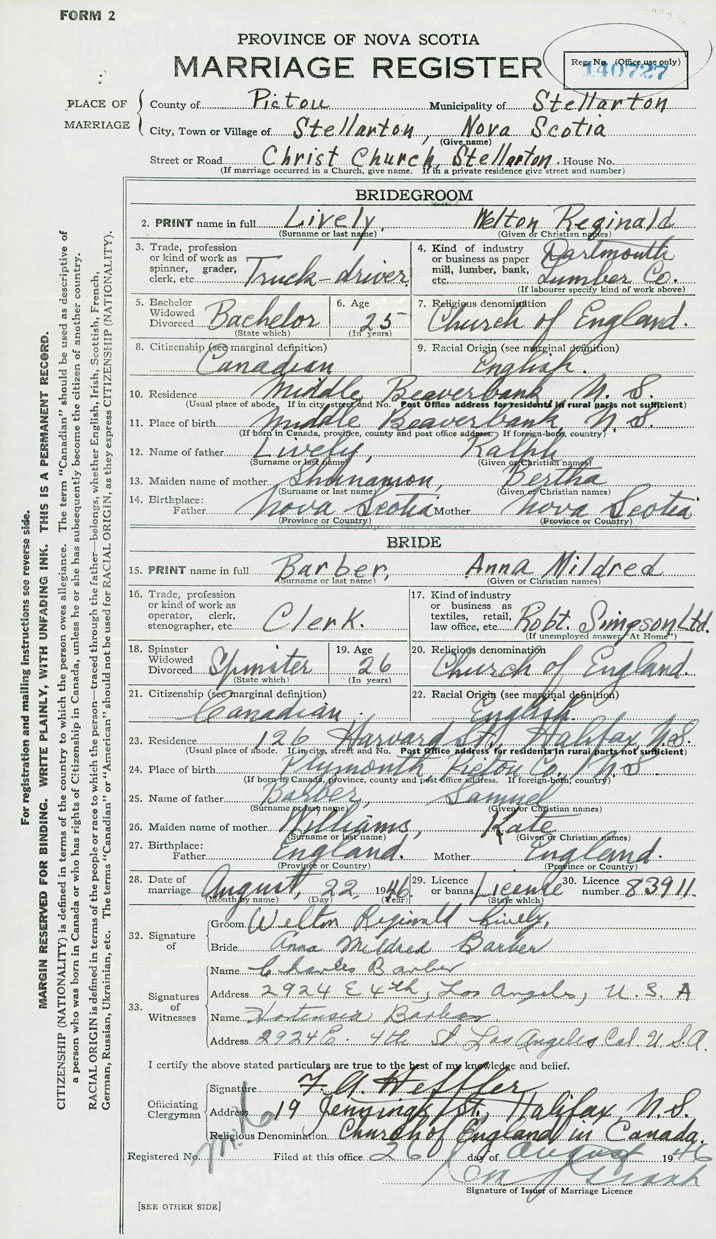 FORM 2
PROVINCE OF NOVA SCOTIA
MARRIAGE REGISTER
Reg. No. (Office use only)
140727
PLACE OF MARRIAGE
County of Pictou Municipality of Stellarton
City, Town or Village of Stellarton, Nova Scotia
(Give name)
Street or Road Christ Church, Stellarton. House No.
(If marriage occurred in a Church, give name. If in a private residence give street and number)
BRIDEGROOM
2. PRINT name in full Lively, Welton Reginald
(Surname or last name) (Given or Christian names)
3. Trade, profession or kind of work as spinner, grader, clerk, etc. Truck-driver
4. Kind of industry or business as paper mill, lumber, bank, etc. Dartmouth Lumber Co.
(If labourer specify kind of work above)
5. Bachelor Widowed Divorced Bachelor
(State which)
6. Age 25
(In years)
7. Religious denomination
Church of England.
8. Citizenship (see marginal definition)
Canadian
9. Racial Origin (see marginal definition)
English.
10. Residence Middle Beaverbank, N. S.
(Usual place of abode. If in city, street and No. Post Office address for residents in rural parts not sufficient)
11. Place of birth Middle Beaverbank, N. S.
(If born in Canada, province, county and post office address. If foreign-born, country)
12. Name of father Lively, Ralph
(Surname or last name) (Given or Christian names)
13. Maiden name of mother Bertha
(Surname or last name) (Given or Christian names)
14. Birthplace:
Father Nova Scotia Mother Nova Scotia
(Province or Country) (Province or Country)
BRIDE
15. PRINT name in full Barber, Anna Mildred
(Surname or last name) (Given or Christian names)
16. Trade, profession or kind of work as operator, clerk, stenographer, etc. Clerk.
17. Kind of industry or business as textiles, retail, law office, etc. Robt. Simpson Ltd.
(If unemployed answer "At Home")
18. Spinster Widowed Divorced Spinster
(State which)
19. Age 26
(In years)
20. Religious denomination
Church of England.
21. Citizenship (see marginal definition)
Canadian.
22. Racial Origin (see marginal definition)
English.
23. Residence 126 Harvard St., Halifax, N.S.
(Usual place of abode. If in city, street and No. Post Office address for residents in rural parts not sufficient)
24. Place of birth Plymouth, Pictou Co., N. S.
(If born in Canada, province, county and post office address. If foreign-born, country)
25. Name of father Barber, Samuel
(Surname or last name) (Given or Christian names)
26. Maiden name of mother Williams, Kate
(Surname or last name) (Given or Christian names)
27. Birthplace:
Father England. Mother England.
(Province or Country) (Province or Country)
28. Date of marriage August, 22 1946
(Month by name) (Day) (Year)
29. Licence or banns License
(State which)
30. Licence number 83911
32. Signature of
Groom Welton Reginald Lively,
Bride Anna Mildred Barber
33. Signatures of Witnesses
Name Charles Barber
Address 2924 E 4th, Los Angeles, U. S. A
Name Hortensia Barber
Address 2924 E. 4th St Los Angeles Cal U.S.A.
I certify the above stated particulars are true to the best of my knowledge and belief.
Officiating Clergyman
Signature F. A. Heffler
Address 19 Jennings St., Halifax, N.S.
Religious Denomination Church of England in Canada.
Registered No. Filed at this office 26 day of August 1946
Signature of Issuer of Marriage Licence
[SEE OTHER SIDE]
For registration and mailing instructions see reverse side.
MARGIN RESERVED FOR BINDING. WRITE PLAINLY, WITH UNFADING INK. THIS IS A PERMANENT RECORD.
CITIZENSHIP (NATIONALITY) is defined in terms of the country to which the person owes allegiance. The term "Canadian" should be used as descriptive of
a person who was born in Canada or who has rights of Citizenship in Canada, unless he or she has subsequently become the citizen of another country.
RACIAL ORIGIN is defined in terms of the people or race to which the person—traced through the father—belongs, whether English, Irish, Scottish, French,
German, Russian, Ukrainian, etc. The terms "Canadian" or "American" should not be used for RACIAL ORIGIN, as they express CITIZENSHIP (NATIONALITY).